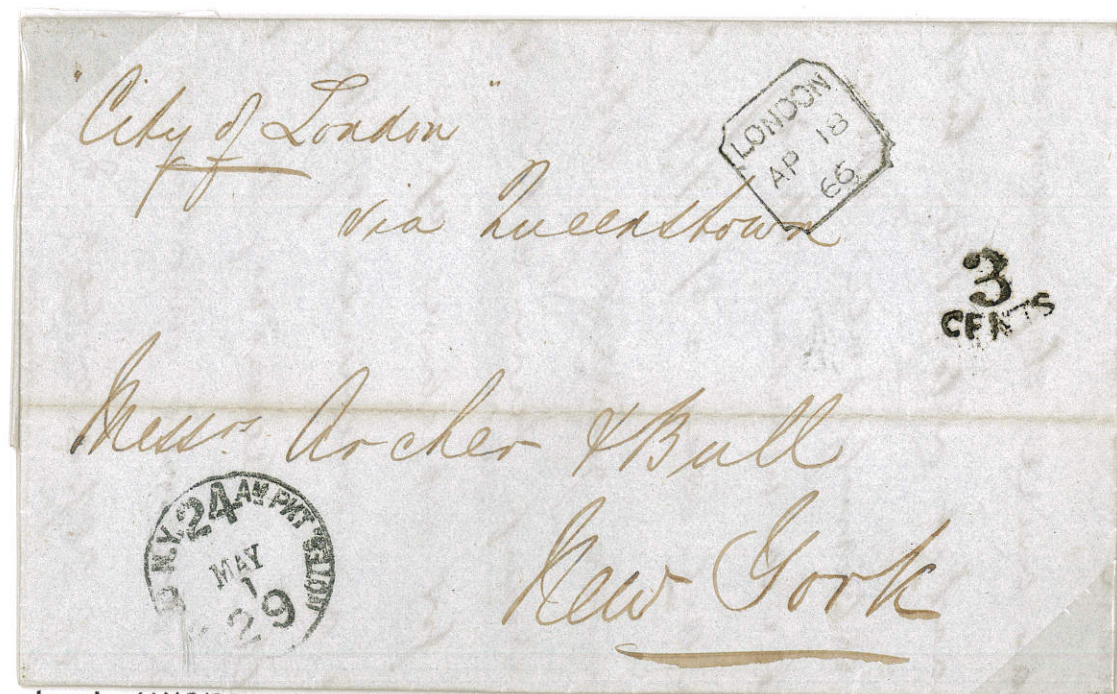 "City of London"
via Queenstown
LONDON
AP 18
66
3
CENTS
Messrs. Archer & Bull
New York
N.Y. 24 AM PKT
MAY
1
29